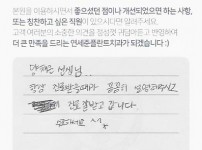 본원을 이용하시면서 좋으셨던 점이나 개선되었으면 하는 사항,
또는 칭찬하고 싶은 직원이 있으시다면 알려주세요.
고객 여러분의 소중한 의견을 정성껏 귀담아듣고 반영하여
더 큰 만족을 드리는 연세준플란트치과가 되겠습니다 :)
선생님..
항상
진료 잘 받고 갑니다